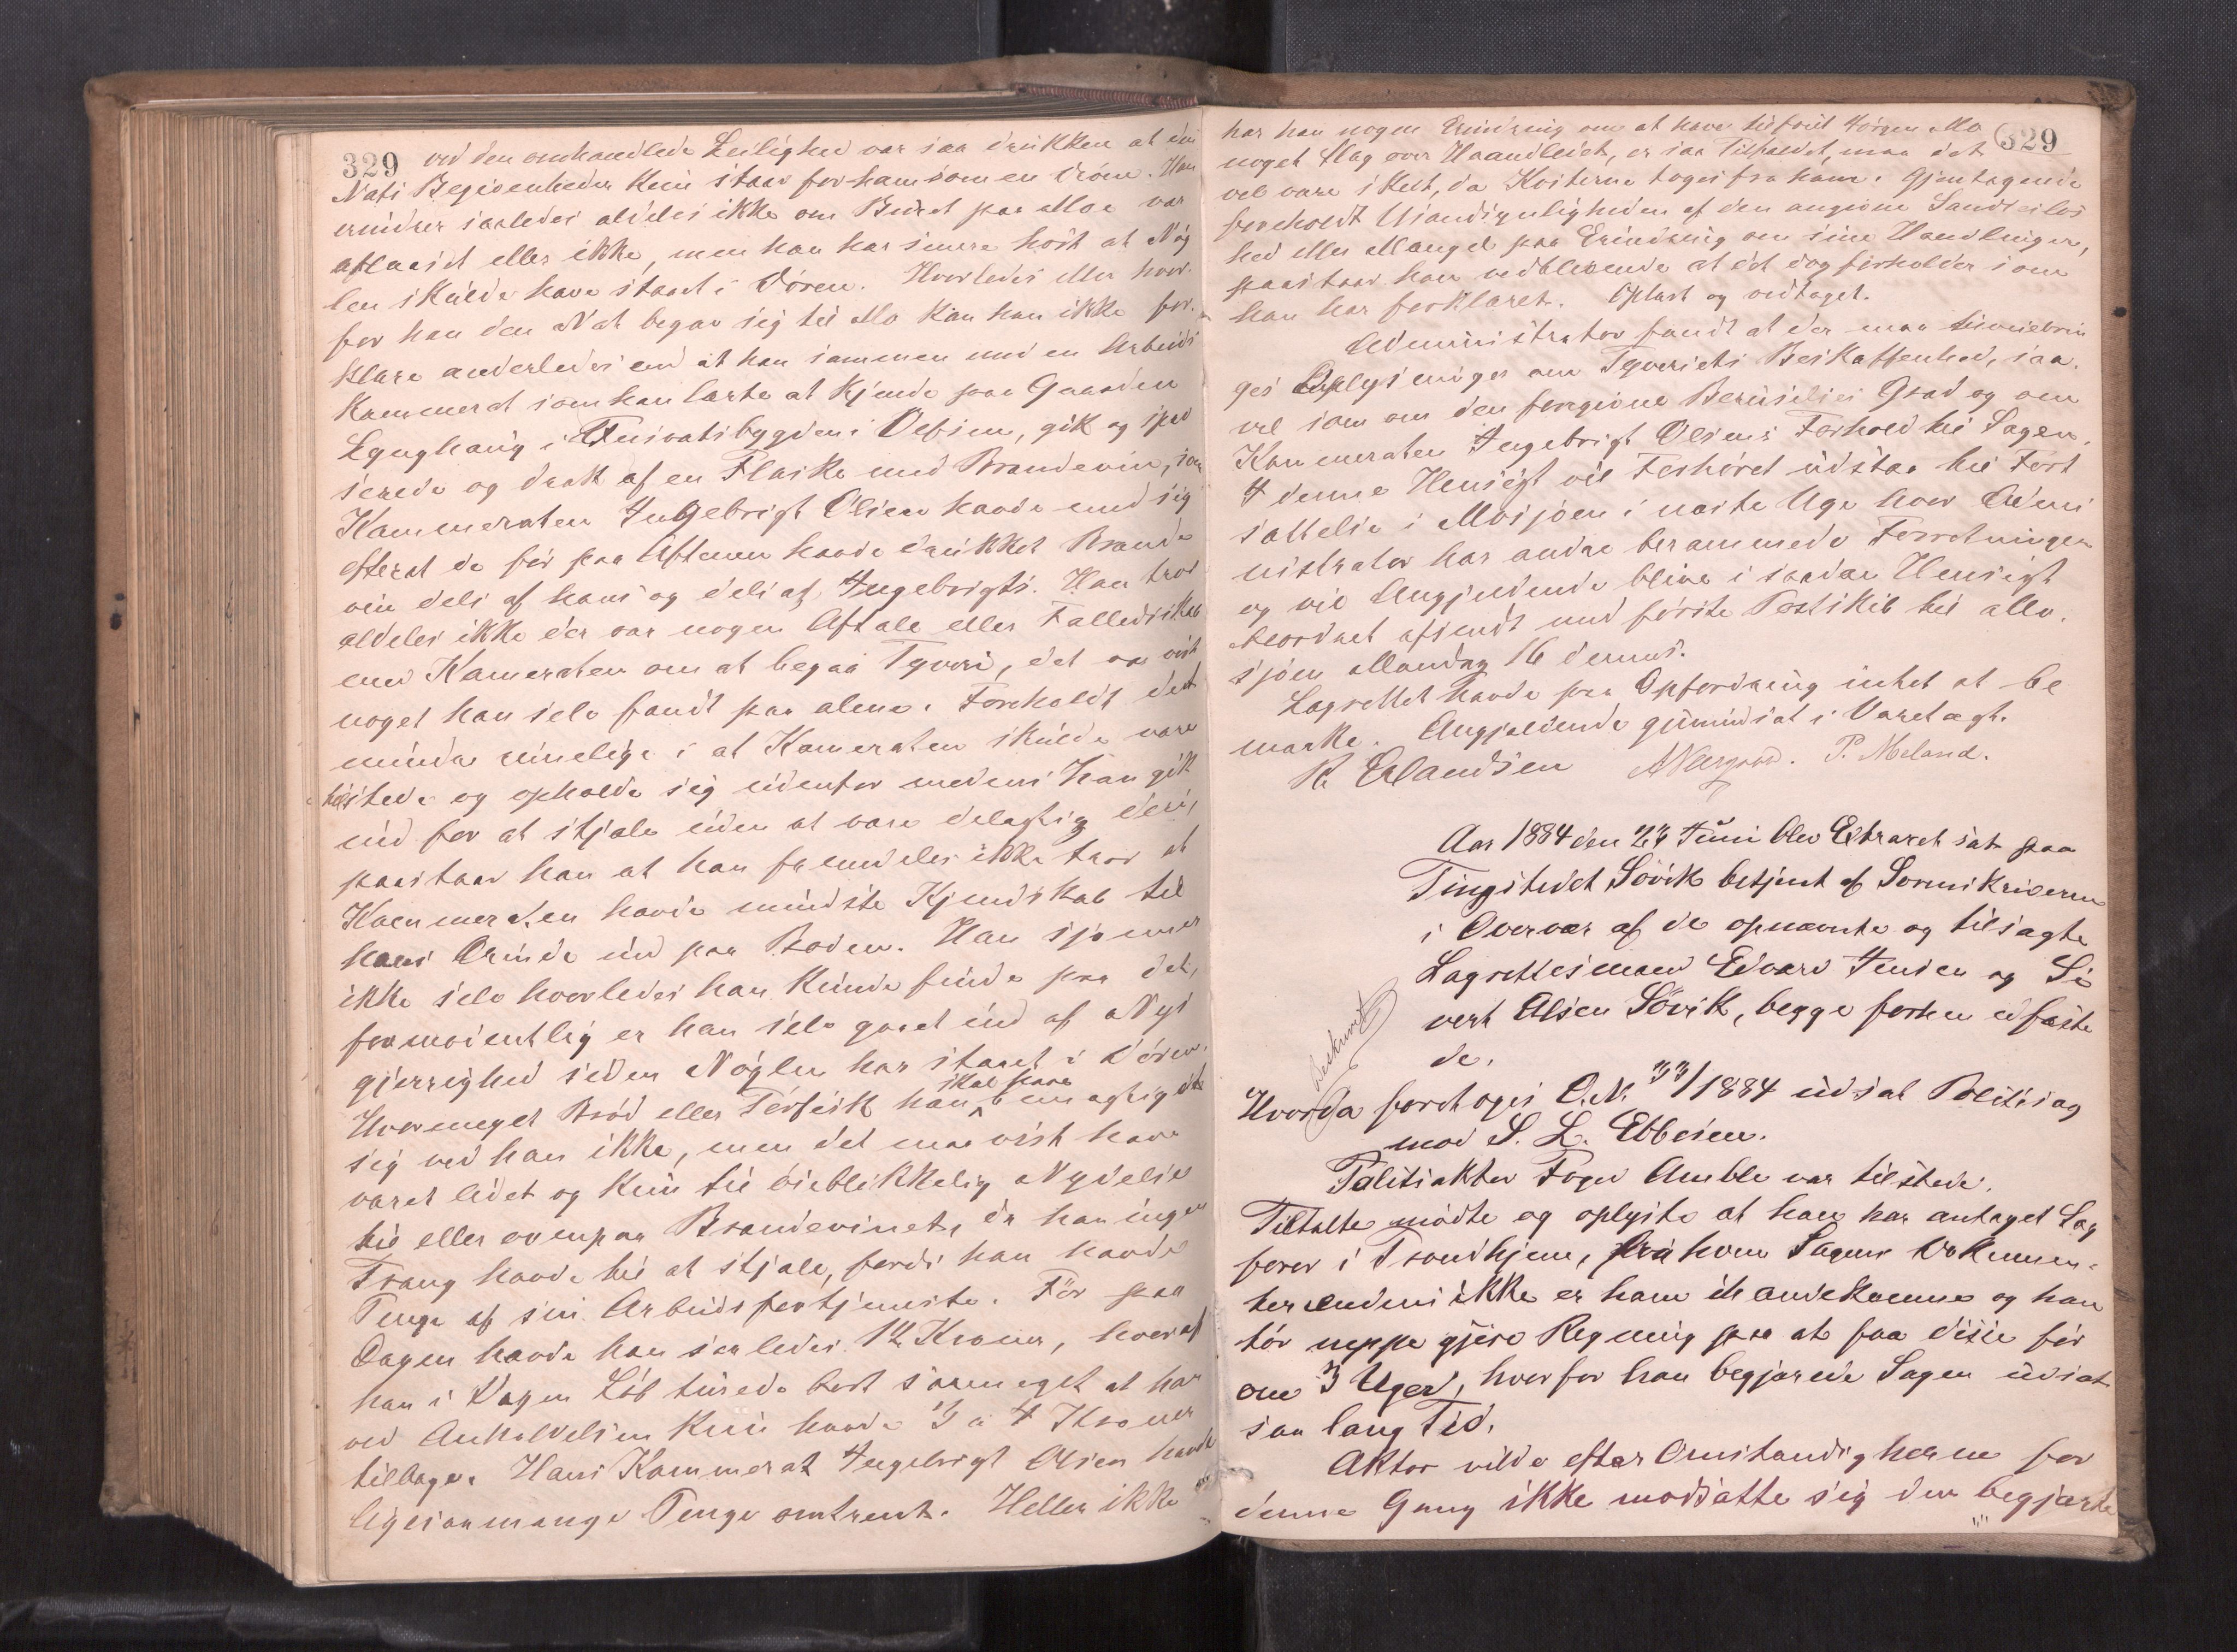 329
ved den omhandlede Leilighed var saa drukken at den
Nats Begivenheder kun staar for ham som en Dröm. Han
erindrer saaledes aldeles ikke om Buret paa Moe var
aflaaset eller ikke, men han har senere hört at Nög
len skulde have staaet i Dören. Hvorledes eller hvor-
for han den Nat begav sig til Mo kan han ikke for-
klare anderledes end at han sammen med en Arbeids
Kammerat som han lærte at kjende paa Gaarden
Lynghaug i Fuivatsbygden i Vefsen, gik og spad
serede og drak af en Flaske med Brændevin, som
Kammeraten Ingebrigt Olsen havde med sig
efterat de för paa Aftenen havde drukket Brænde
vin dels af hans og dels af Ingebrigts. Han tror
aldeles ikke der var nogen Aftale eller Fælledsskab
med Kameraten om at begaa Tyveri, det var vist
noget han selv fandt paa alene. Foreholdt det
mindre rimelige i at Kameraten skulde være
tilstede og opholde sig udenfor medens han gik
ind for at stjæle uden at være delagtig deri,
paastaar han at han fremdeles ikke tror at
Kammeraten havde mindste Kjendskab til
hans Ærinde ind paa Boden. Han sjønner
ikke selv hvorledes han kunde finde paa det,
formodentlig er han selv gaaet ind af Nys
gjerrighed siden Nöglen har staaet i Dören.
Hvormeget Bröd eller Törfisk han skal have bemægtiget
sig ved han ikke, men det maa vist have
været lidet og kun til öieblikkelig Nydelse
til eller ovenpaa Brændevinet, da han ingen
Trang havde til at stjæle, fordi han havde
Penge af sin Arbeidsfortjeneste. För paa
Dagen havde han saaledes 12 Kroner, hvoraf
han i Dagens Löb turede bort saameget at han
ved Anholdelsen kun havde 3 a 4 Kroner
tilbage. Hans Kammerat Ingebrigt Olsen havde
ligesaamange Penge omtrent. Heller ikke
329
har han nogen Erindring om at have tilföiet Jörgen Mo
noget Slag over Haandledet, er saa Tilfældet, maa det
vel være skeet, da Kosterne toges fra ham. Gjentagende
foreholdt Usandsynligheden af den angivne Sandseslös
hed eller Mangel paa Erindring om sine Handlinger,
paastaar han vedblivende at det dog forholder som
han har forklaret. Oplæst og vedtaget.
Administrator fandt at der maa tilveiebrin
ges Oplysninger om Tyveriets Beskaffenhed, saa-
vel som om den foregivne Beruselses Grad og om
Kammeraten Ingebrigt Olsens Forhold til Sagen.
I denne Hensigt vil Forhöret udstaa til Fort
sættelse i Mosjöen i næste Uge hvor Admi
nistrator har andre berammede Forretninger
og vil Angjeldende blive i saadan Hensigt
beordret afsendt med förste Postskib til Mo-
sjöen Mandag 16 dennes.
Lagrettet havde paa Opfordring intet at be
mærke. Angjeldende gjenindsat i Varetægt.
R Erlandsen P. Meland.
Aar 1884 den 23 Juni blev Extraret sat paa
Tingstedet Sövik betjent af Sorenskriveren
i Overvær af de opnævnte og tilsagte
Lagrettesmænd Edvard Jensen og Si
vert Olsen Sövik, begge forhen edfæste
de.
Beskrevet
Hvorda foretoges O.N. 33/1884 udsat Politisag
mod S. L. Ebbesen.
Politiaktor Foged Amble var tilstede.
Tiltalte mödte og oplyste at han har antaget Sag
förer i Trondhjem, fra hvem Sagens Dokumen-
ter endnu ikke er ham ihændekomne og han
tör neppe gjöre Regning paa at faa disse för
om 3 Uger, hvorfor han begjærede Sagen udsat
saa lang Tid.
Aktor vilde efter Omstændighederne for
denne Gang ikke modsætte sig den begjærte